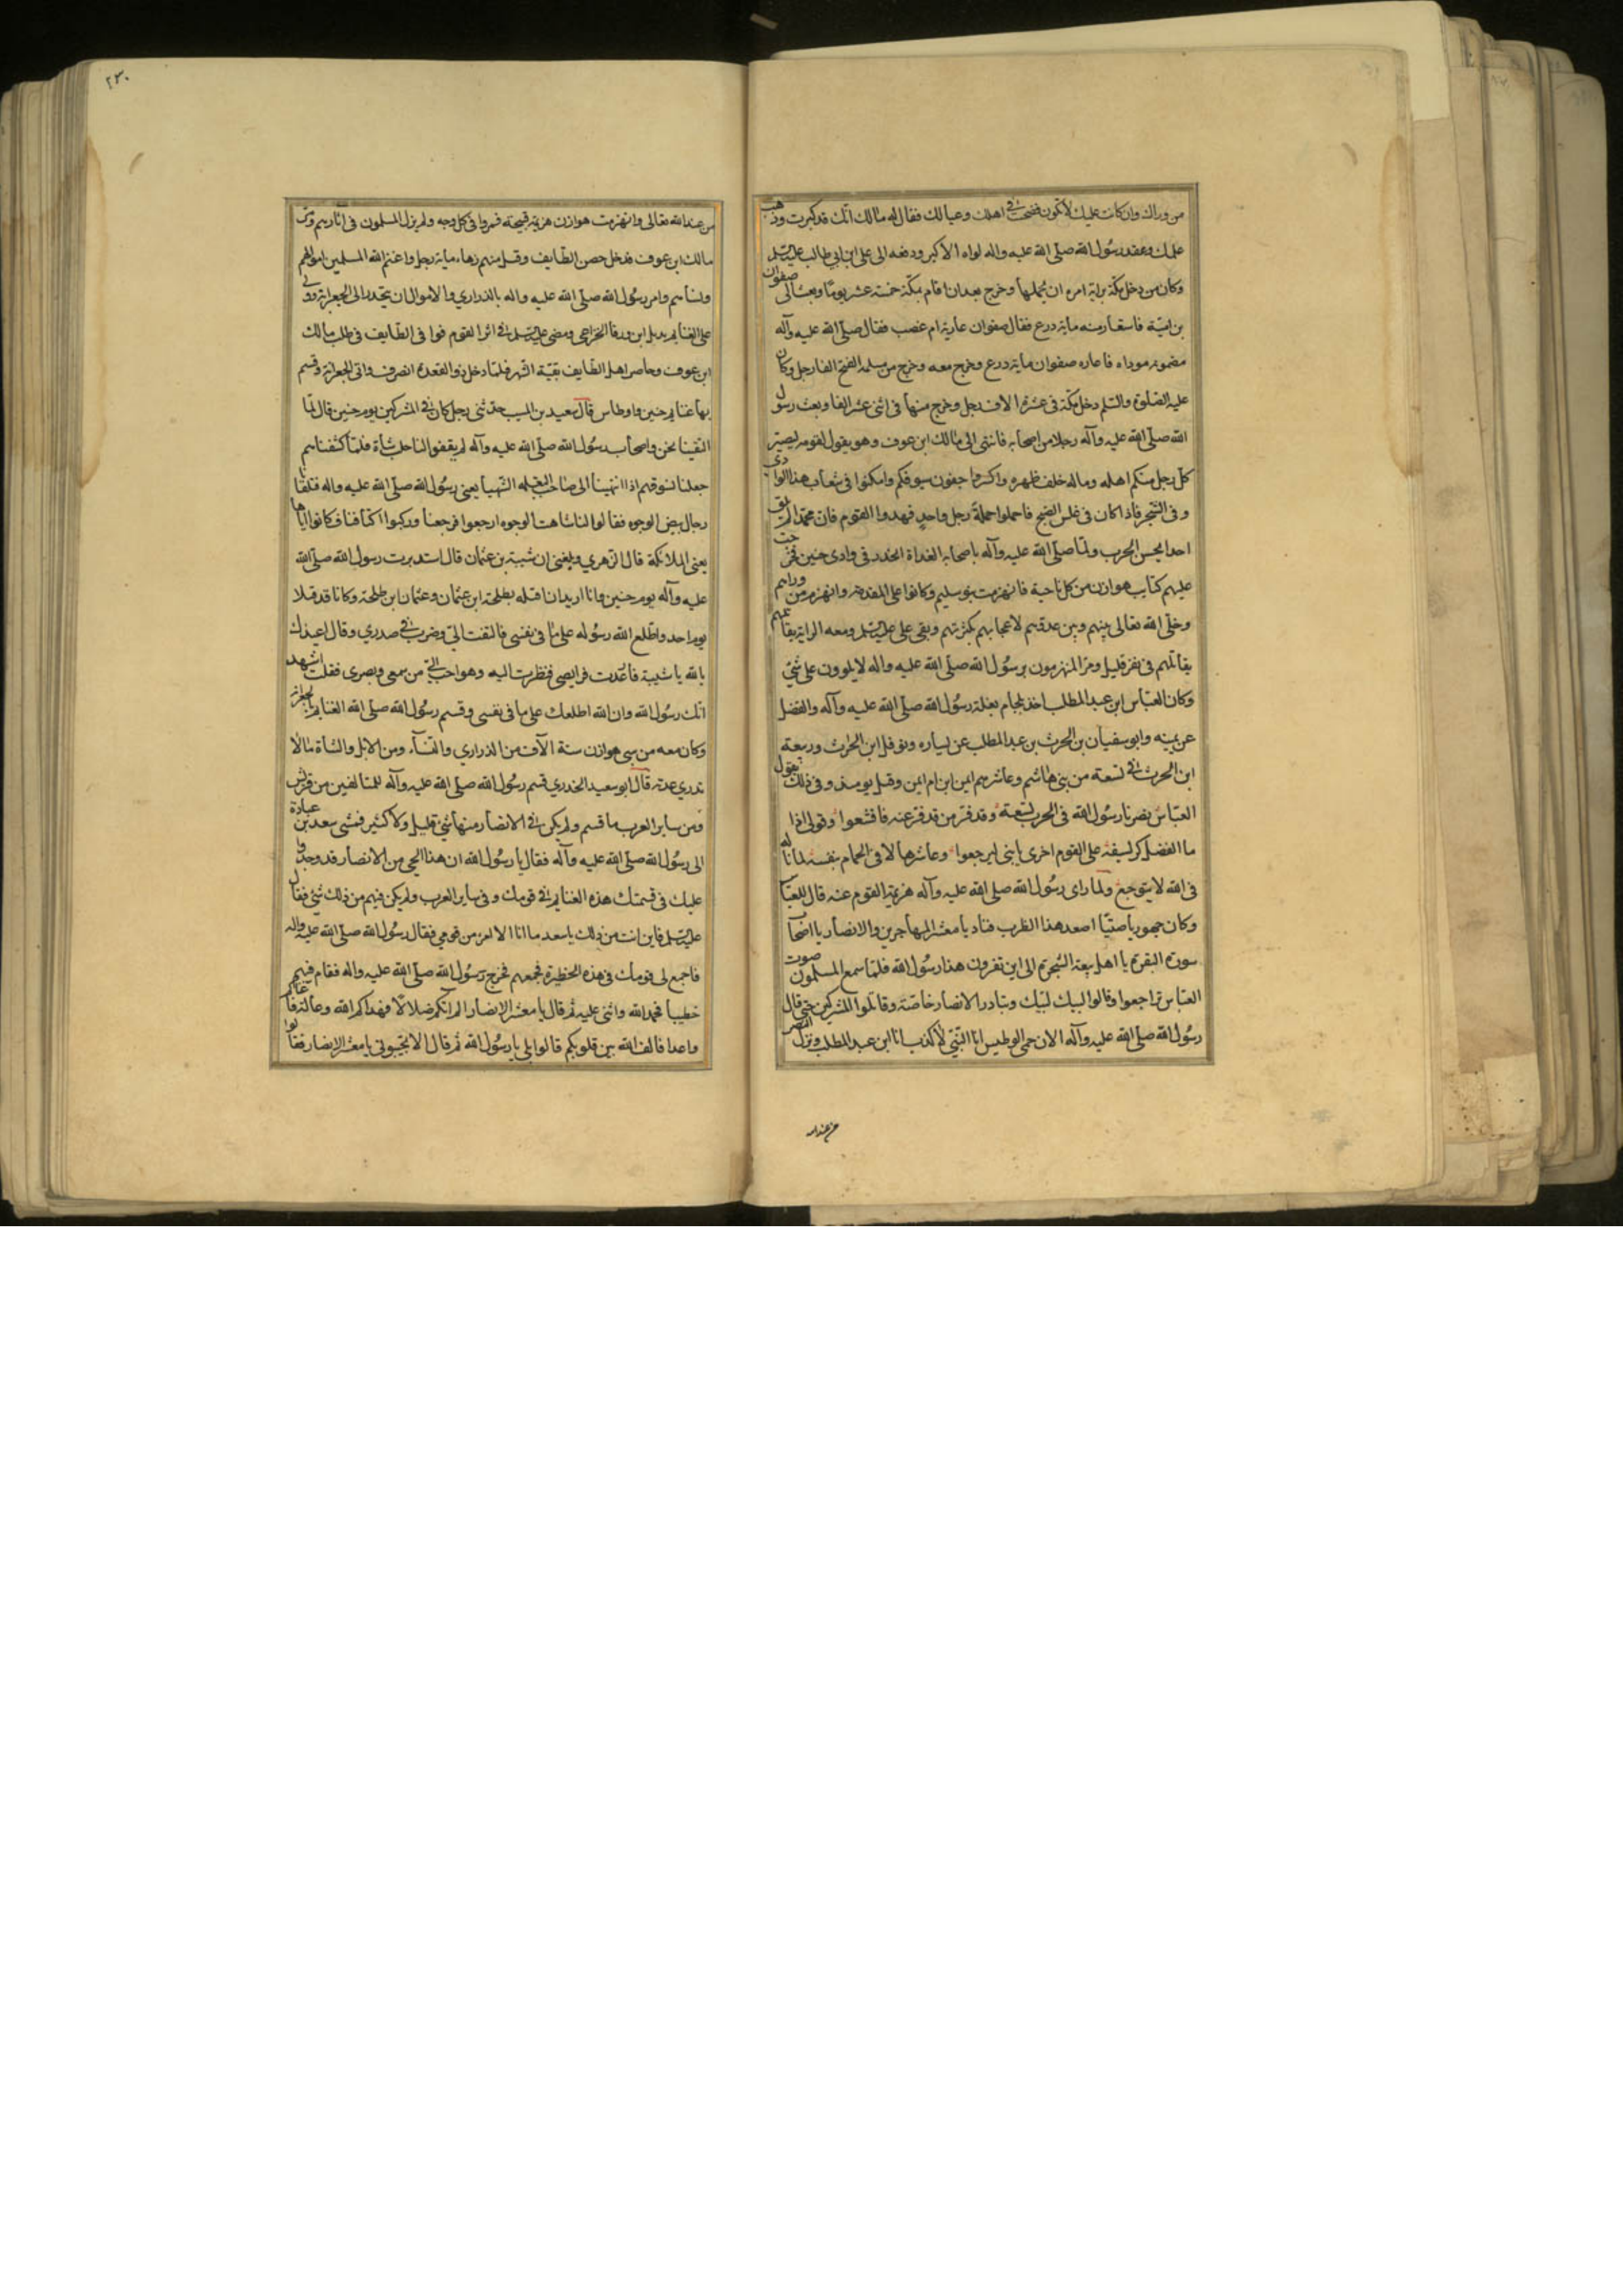 من وراك وان كانت عليك لا تكون فضحت في اهلك وعيالك فقال له مالك انك قد كبرت وذهب
علمك وعقد رسول الله صلى الله عليه واله لواه الاكبر ودفعه الى على ابن ابي طالب عليه السلم
وكان من دخل مكة براية امره ان يحملها وخرج بعد ان اقام بمكة خمسة عشر يوما وبعث الى صفوان
بن امية فاستعار منه ماية درع فقال صفوان عارية ام غصب فقال صلى الله عليه وآله
مضمونة موداه فاعاره صفوان ماية درع وخرج معه وخرج من مسلمة الفتح الفا رجل وكان
عليه الصلوة والسلم دخل مكة في عشرة الاف رجل وخرج منها في اثنى عشر الفا وبعث رسول
الله صلى الله عليه وآله رجلا من اصحابه فانتهى الى مالك ابن عوف وهو يقول لقومه ليصير
كل رجل منكم اهله وماله خلف ظهره واكسروا جفون سيوفكم وامكنوا في شعاب هذا الوادي
وفي الشجر فاذا كان في غلس الصبح فاحملوا حملة رجل واحد فهدوا القوم فان محمدا لم يلق
احدا يحسن الحرب ولما صلى الله عليه وآله باصحابه الغداة انحدر في وادى حنين فخرجت
عليهم كتايب هوازن من كل ناحية فانهزمت بنو سليم وكانوا على المقدمة وانهزم من ورايهم
وخلى الله تعالى بينهم وبين عدوهم لاعجابهم بكثرتهم وبقى على عليه السلم ومعه الراية يقاتلهم
يقاتلهم في نفر قليل ومر المنهزمون برسول الله صلى الله عليه واله لا يلوون على شيء
وكان العباس ابن عبد المطلب اخذ بلجام بغلة رسول الله صلى الله عليه وآله والفضل
عن يمينه وابو سفيان بن الحرث بن عبد المطلب عن يساره ونوفل ابن الحارث وربيعة
ابن الحرث في تسعة من بني هاشم وعاشرهم ايمن ابن ام ايمن وقتل يوميذ وفي ذلك يقول
العباس نصرنا رسول الله في الحرب تسعة وقد فر من قد فر عنه فاقشعوا وقولى اذا
ما الفضل كر لسيفه على القوم اخرى يا بني ليرجعوا وعاشرها لاقى الحمام بنفسه لما ناله
في الله لا يتوجع ولما راى رسول الله صلى الله عليه وآله هزيمة القوم عنه قال للعباس
وكان جهوريا صيتا اصعد هذا الظرب فناد يا معشر المهاجرين والانصار يا اصحاب
سورة البقرة يا اهل بيعة الشجرة الى اين تفرون هذا رسول الله فلما سمع المسلمون صوت
العباس تراجعوا وقالوا لبيك لبيك وتبادر الانصار خاصة وقاتلوا المشركين حتى قال
رسول الله صلى الله عليه وآله الان حمي الوطيس انا النبي لا كذب انا ابن عبد المطلب ونزل النصر
من عند الله
٢٣٠
من عند الله تعالى وانهزمت هوازن هزيمة قبيحة فمروا في كل وجه ولم يزل المسلمون في اثارهم ومر
مالك ابن عوف فدخل حصن الطايف وقتل منهم زهاء ماية رجل واغنم الله المسلمين اموالهم
ونساهم وامر رسول الله صلى الله عليه واله بالذراري والاموال ان يحدر الى الجعرانة وولى
على الغنايم بديل ابن ورقا الخزاعي ومضى عليه السلم في اثر القوم فوافى الطايف في طلب مالك
ابن عوف وحاصر اهل الطايف بقية الشهر فلما دخل ذو القعدة انصرف واتى الجعرانة وقسم
بها غنايم حنين واوطاس قال سعيد بن المسيب حدثني رجل كان في المشركين يوم حنين قال لما
التقينا نحن واصحاب رسول الله صلى الله عليه وآله لم يقفوا لنا حلب شاة فلما كشفناهم
جعلنا نسوقهم اذا انتهينا الى صاحب البغلة الشهبا يعنى رسول الله صلى الله عليه واله فتلقانا
رجال بيض الوجوه فقالوا لنا شاهت الوجوه ارجعوا فرجعنا وركبوا اكتافنا فكانوا اياها
يعنى الملائكة قال الزهري وبلغني ان شيبة بن عثمان قال استدبرت رسول الله صلى الله
عليه وآله يوم حنين وانا اريد ان اقتله بطلحة ابن عثمان وعثمان ابن طلحة وكانا قد قتلا
يوم احد واطلع الله رسوله على ما في نفسى فالتفت الي وضرب في صدري وقال اعيذك
بالله يا شيبة فارعدت فرايصى فنظرت اليه وهو احب الي من سمعى وبصرى فقلت اشهد
انك رسول الله وان الله اطلعك على ما في نفسى وقسم رسول الله صلى الله الغنايم بالجعرانة
وكان معه من سبى هوازن ستة الآف من الذراري والنساء ومن الابل والشاة مالا
يدري عدته قال ابو سعيد الخدري قسم رسول الله صلى الله عليه وآله للمتالفين من قريش
ومن ساير العرب ما قسم ولم يكن في الانصار منها شئ قليل ولا كثير فمشى سعد بن عبادة
الى رسول الله صلى الله عليه وآله فقال يا رسول الله ان هذا الحي من الانصار قد وجدوا
عليك في قسمتك هذه الغنايم في قومك وفي ساير العرب ولم يكن فيهم من ذلك شئ فقال
عليه السلم فاين انت من ذلك يا سعد ما انا الا امرء من قومي فقال رسول الله صلى الله عليه واله
فاجمع لى قومك في هذه الحظيرة فجمعهم فخرج رسول الله صلى الله عليه واله فقام فيهم
خطيبا فحمد الله واثنى عليه ثم قال يا معشر الانصار الم اتكم ضلالا فهداكم الله وعالة فاغناكم
واعدا فالف الله بين قلوبكم قالوا بلى يا رسول الله ثم قال الا تجيبوني يا معشر الانصار فقالوا